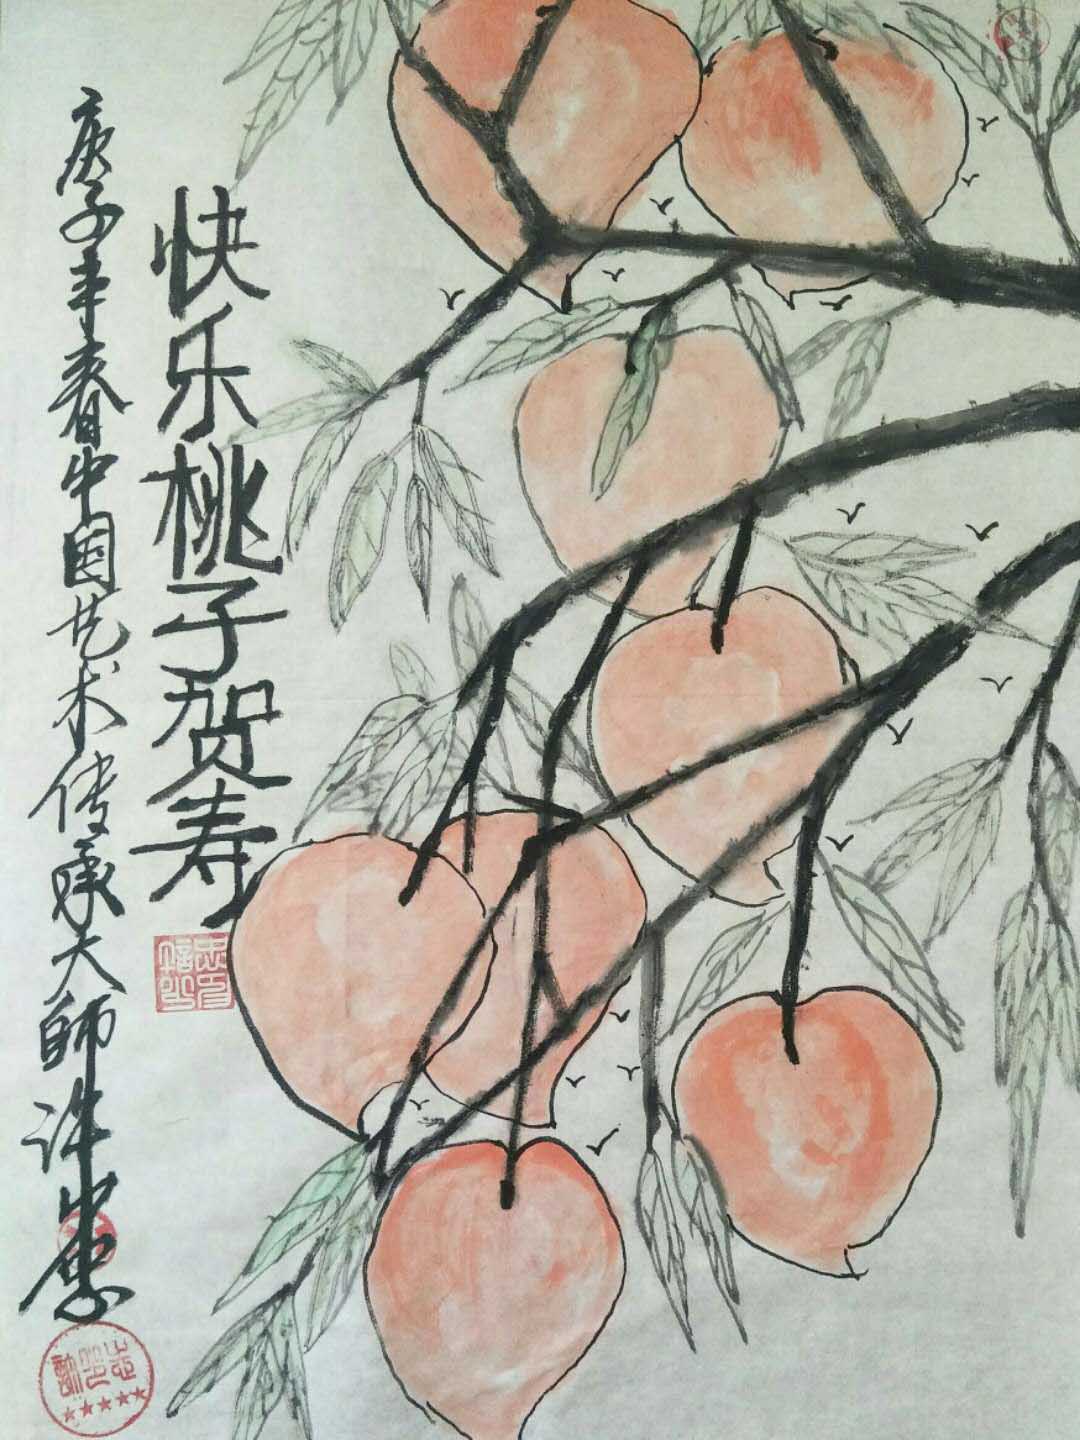 快乐桃子贺寿
庚子年春中国艺术传承大師许